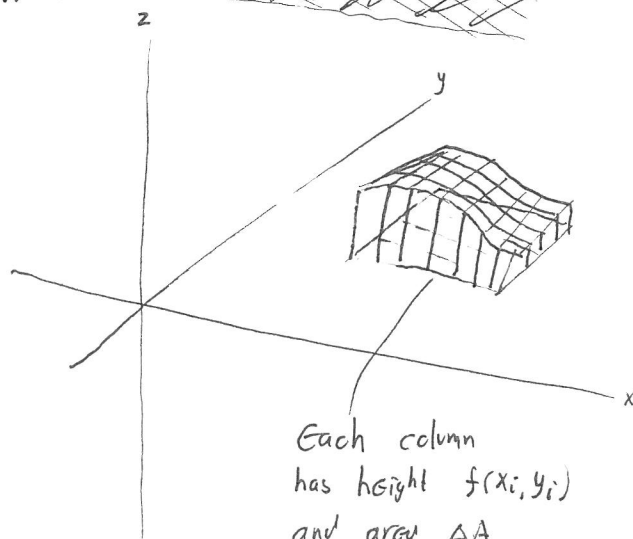 z
y
x
Each column
has height f(xᵢ, yᵢ)
and area ΔA